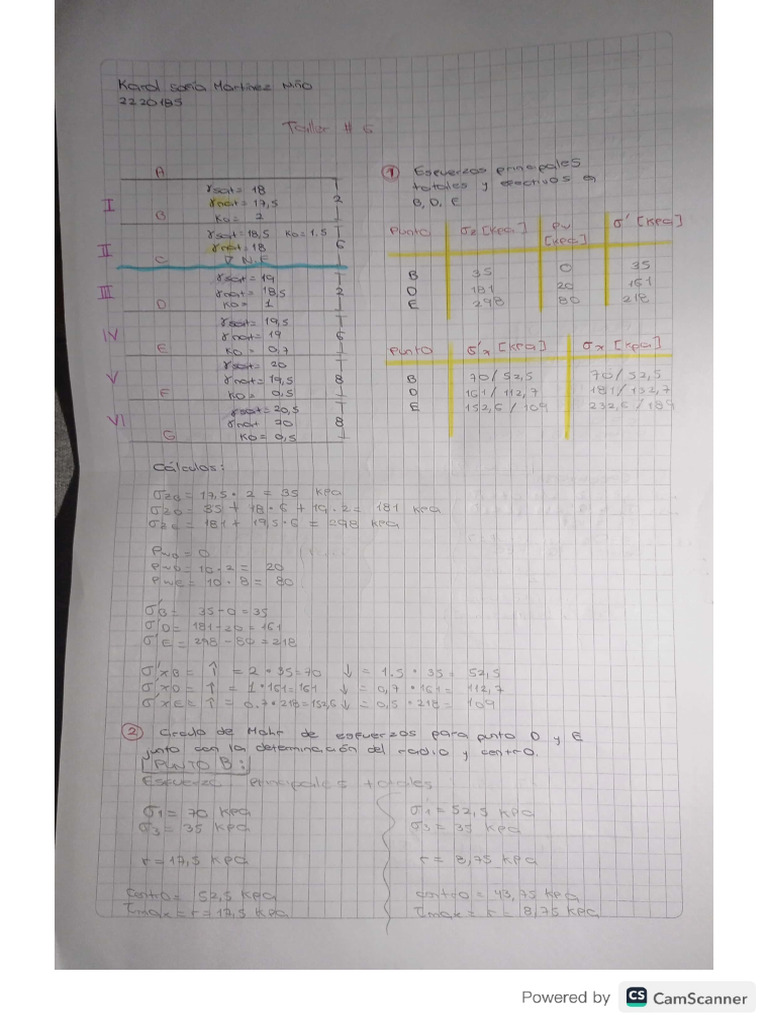 Karol Sofía Martínez Niño
2220185
Taller # 6
A
I
γsat = 18
γnat = 17,5
Ko = 2
2
B
II
γsat = 18,5 Ko = 1.5
γnat = 18
∇ N.F
6
C
III
γsat = 19
γnat = 18,5
Ko = 1
2
D
IV
γsat = 19,5
γnat = 19
Ko = 0,7
6
E
V
γsat = 20
γnat = 19,5
Ko = 0,5
8
F
VI
γsat = 20,5
γnat 20
Ko = 0,5
8
G
① Esfuerzos principales
totales y efectivos en
B, D, E
Punto σz [Kpa] Pw [Kpa] σ' [Kpa]
B 35 0 35
D 181 20 161
E 298 80 218
Punto σ'x [Kpa] σx [Kpa]
B 70 / 52,5 70 / 52,5
D 161 / 112,7 181 / 132,7
E 152,6 / 109 232,6 / 189
Cálculos:
σzB = 17,5 · 2 = 35 Kpa
σzD = 35 + 18 · 6 + 19 · 2 = 181 Kpa
σzE = 181 + 19,5 · 6 = 298 Kpa
PwB = 0
PwD = 10 · 2 = 20
PwE = 10 · 8 = 80
σ'B = 35 - 0 = 35
σ'D = 181 - 20 = 161
σ'E = 298 - 80 = 218
σ'xB = ↑ = 2 · 35 = 70 ↓ = 1.5 · 35 = 52,5
σ'xD = ↑ = 1 · 161 = 161 ↓ = 0,7 · 161 = 112,7
σ'xE = ↑ = 0.7 · 218 = 152,6 ↓ = 0,5 · 218 = 109
② Circulo de Mohr de esfuerzos para punto D y E
junto con la determinación del radio y centro.
PUNTO B:
Esfuerzo Principales totales
σ1 = 70 Kpa
σ3 = 35 Kpa
r = 17,5 Kpa
centro = 52,5 Kpa
τmax = r = 17,5 Kpa
σ1 = 52,5 Kpa
σ3 = 35 Kpa
r = 8,75 Kpa
centro = 43,75 Kpa
τmax = r = 8,75 Kpa
Powered by CS CamScanner